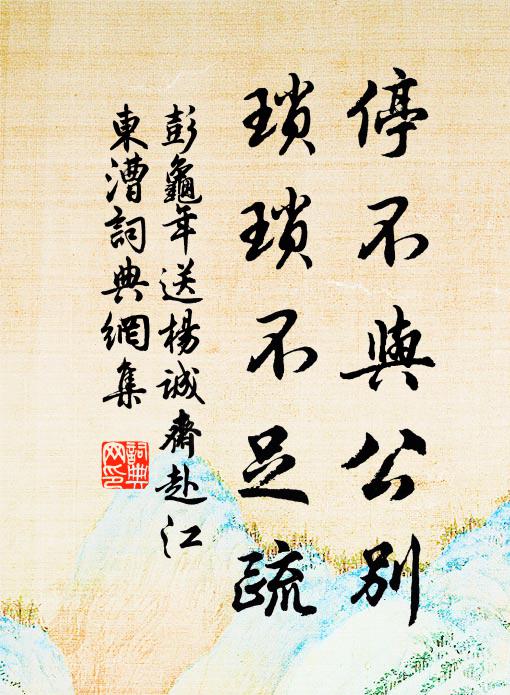 停不與公別
瑣瑣不足疏
彭龜年送楊誠齋赴江
東漕詞典網集
詞典
网印